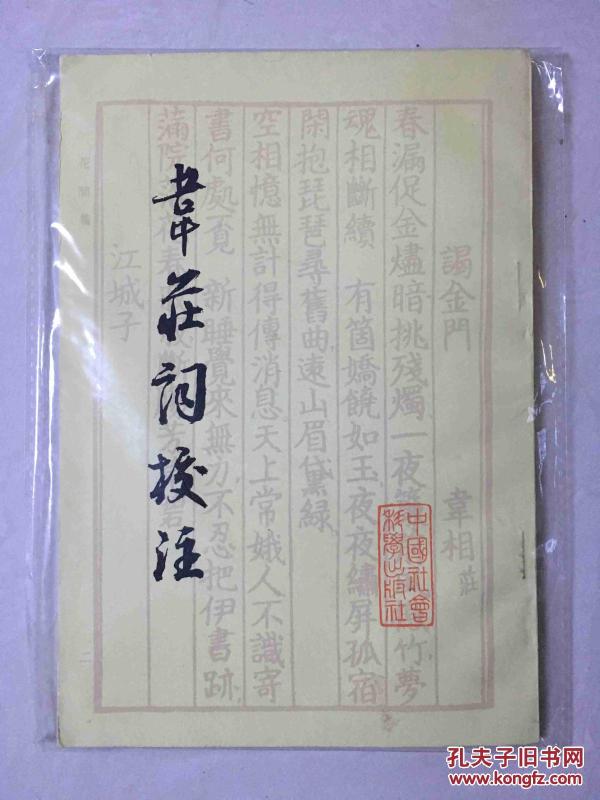 韋莊詞校注
謁金門 韋相莊
春漏促金燼暗挑殘燭一夜竹夢
魂相斷續 有箇嬌饒如玉夜夜繡屏孤宿
閑抱琵琶尋舊曲遠山眉黛綠
空相憶無計得傳消息天上常娥人不識寄
書何處覓 新睡覺來無力不忍把伊書跡
滿院花春芳
江城子
花間集 二
中國社會
科學出版社
孔夫子旧书网
www.kongfz.com